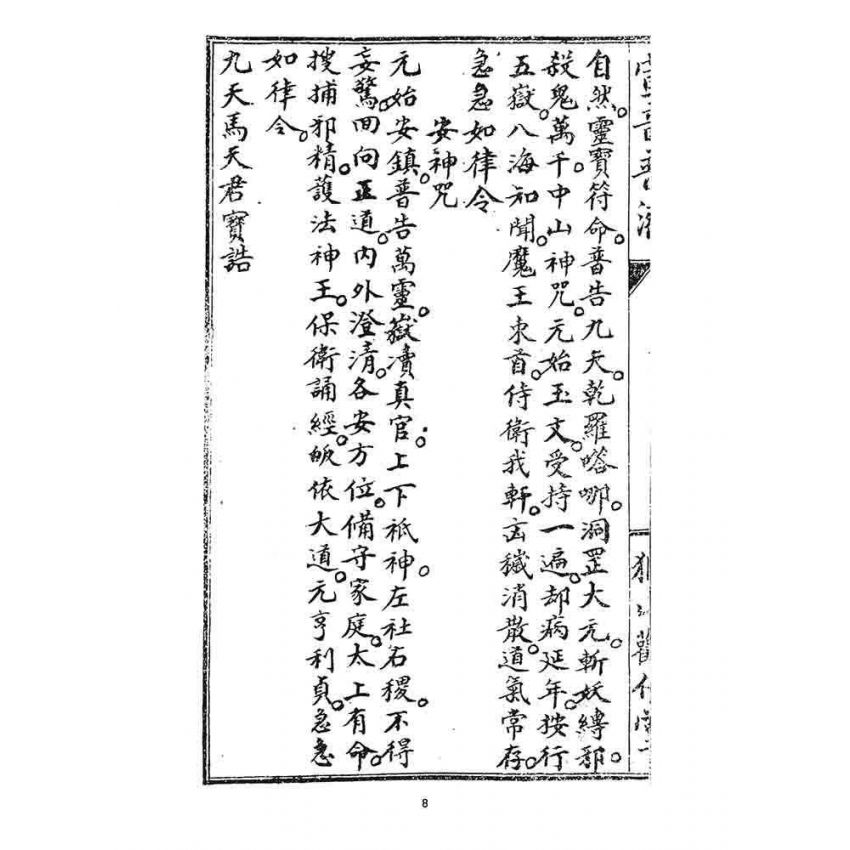 自然。靈寶符命。普告九天。乾羅嗒哪。洞罡大元。斬妖縛邪。
殺鬼萬千。中山神咒。元始玉文。受持一遍。却病延年。按行
五嶽。八海知聞。魔王束首。侍衛我軒。㓙穢消散。道氣常存。
急急如律令
安神咒
元始安鎮。普告萬靈。嶽瀆真官。上下祇神。左社右稷。不得
妄驚。回向正道。內外澄清。各安方位。備守家庭。太上有命。
搜捕邪精。護法神王。保衛誦經。皈依大道。元亨利貞。急急
如律令。
九天馬天君寶誥
8